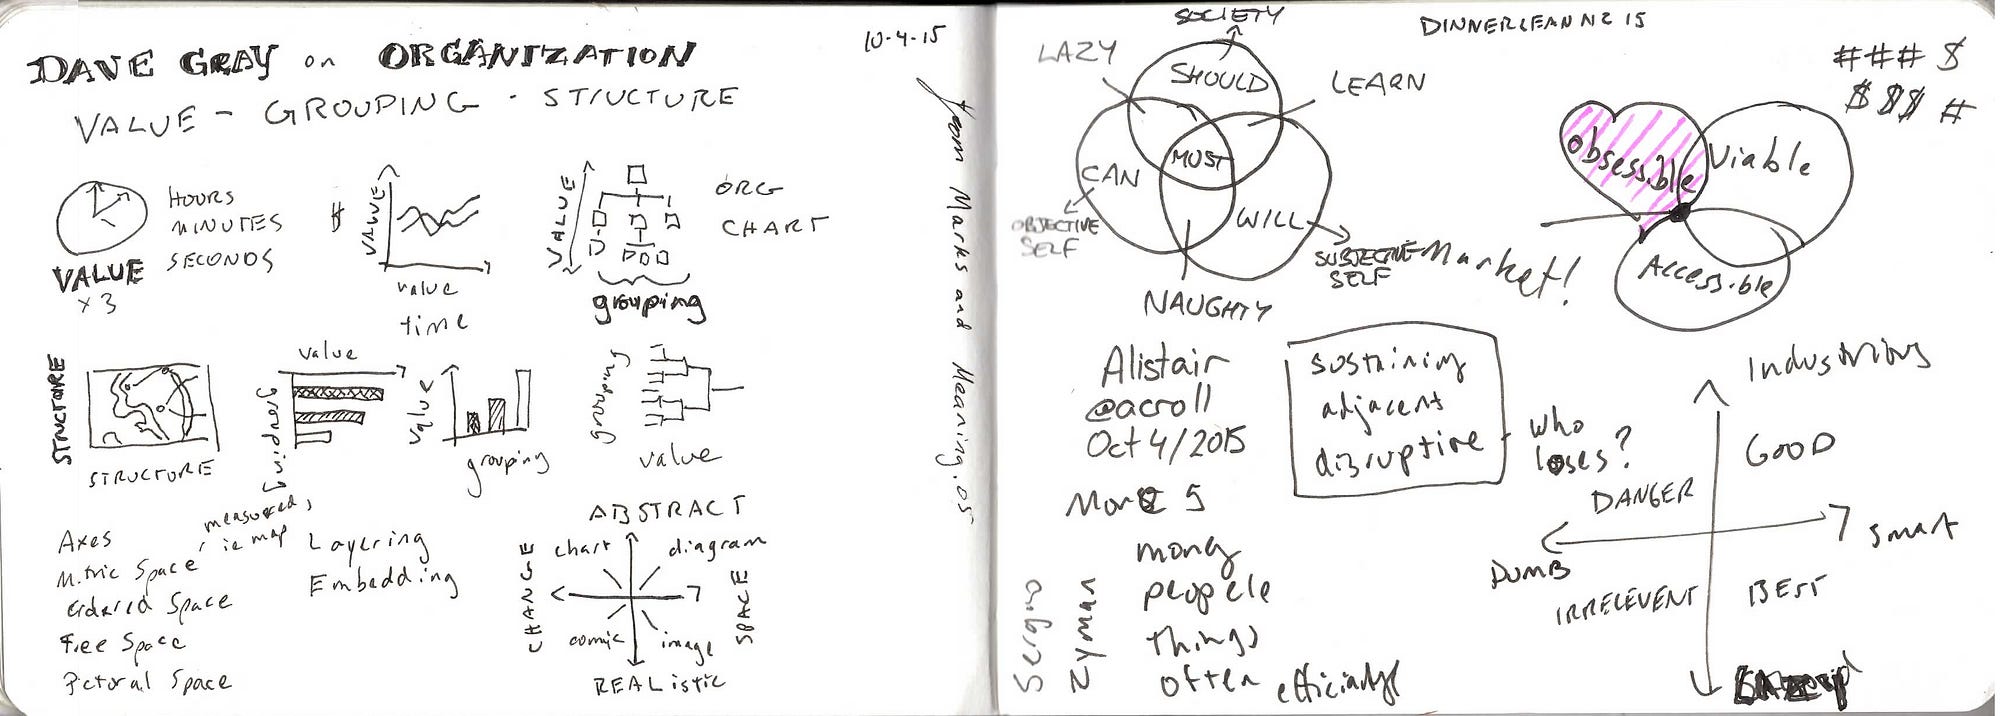 DAVE GRAY on ORGANIZATION
10-4-15
VALUE - GROUPING · STRUCTURE
from Marks and Meaning.
HOURS
MINUTES
SECONDS
VALUE
x 3
$
VALUE
value
time
VALUE
ORG
CHART
grouping
STRUCTURE
STRUCTURE
value
grouping
value
grouping
grouping
value
Axes
Metric Space
measured,
ie map
Ordered Space
Free Space
Pictoral Space
Layering
Embedding
ABSTRACT
chart
diagram
CHANGE
SPACE
comic
image
REALISTIC
SOCIETY
DINNERLEANNZ 15
LAZY
SHOULD
LEARN
CAN
MUST
WILL
OBJECTIVE
SELF
SUBJECTIVE
SELF
NAUGHTY
# # # $
$ $ $ #
Obsessible
Viable
Accessible
Market!
Alistair
@acroll
Oct 4/2015
sustaining
adjacent
disruptive
who
loses?
More 5
money
peopele
things
often
Sergio
Zyman
Industrious
GOOD
DANGER
Smart
DUMB
IRRELEVENT
BEST